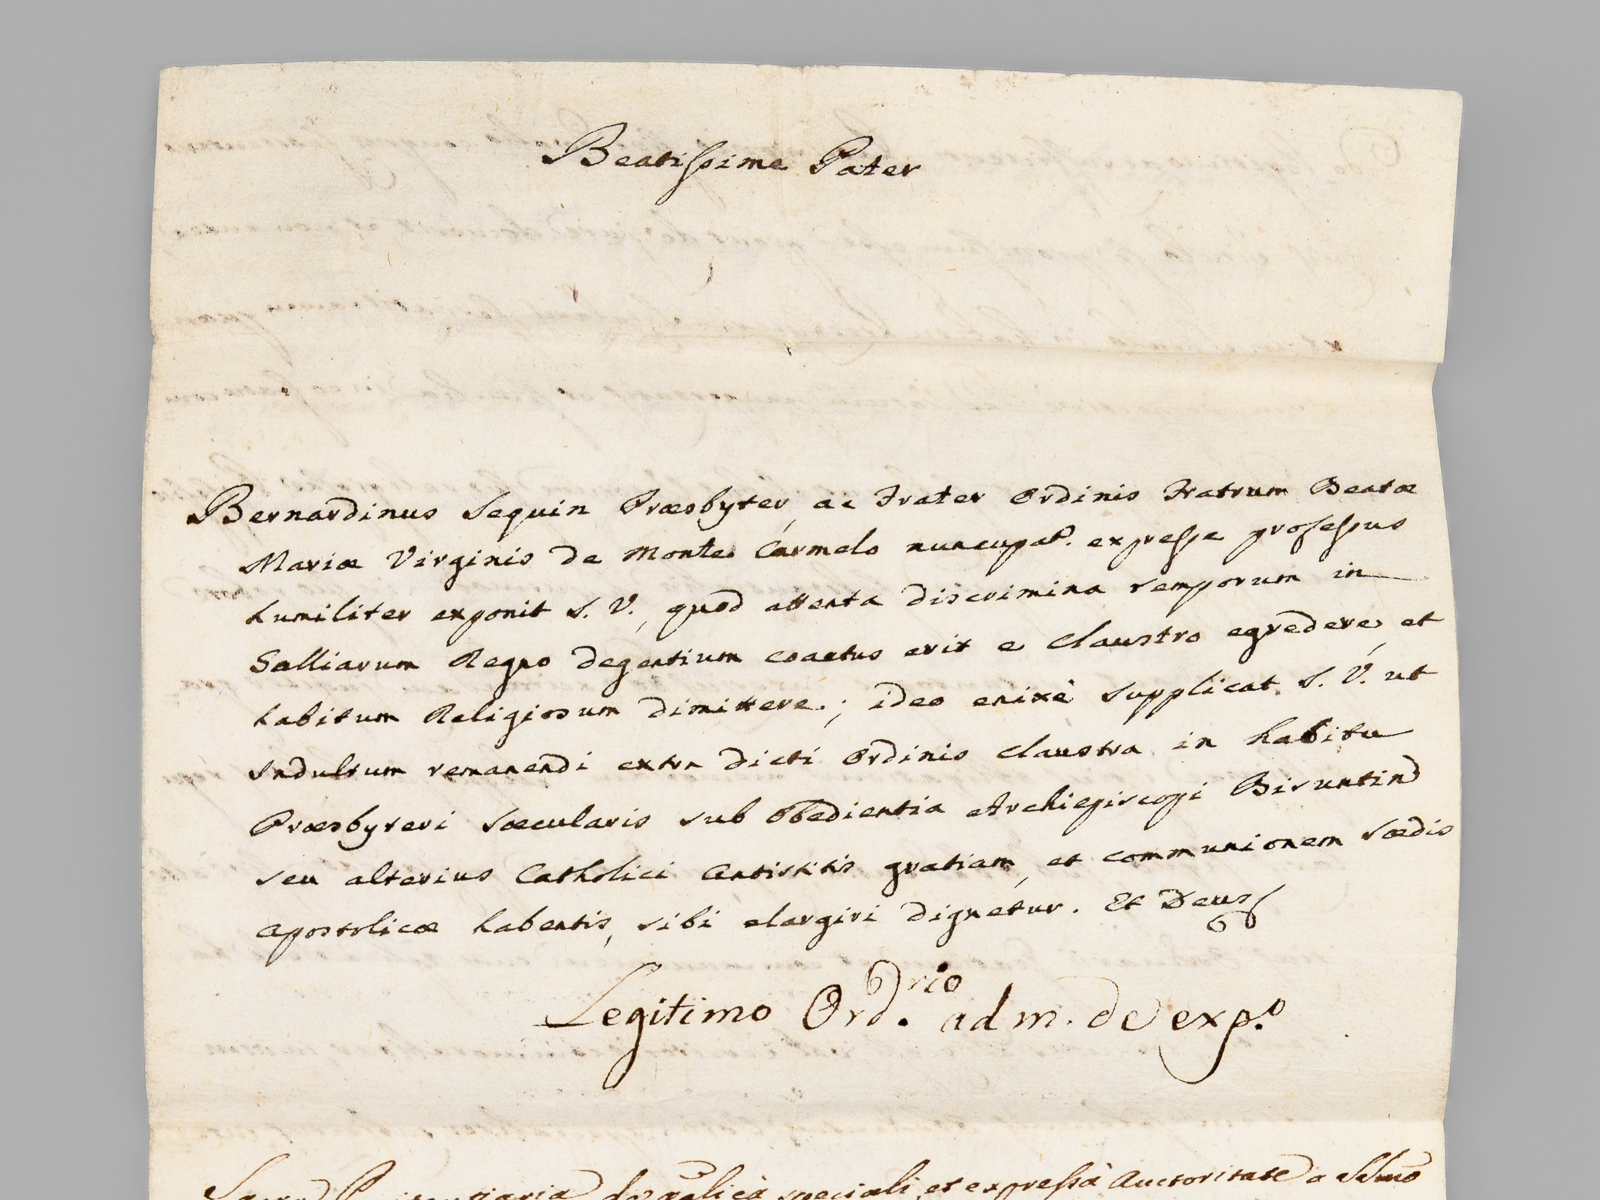 Beatissime Pater
Bernardinus Seguin Præsbyter, ac Frater Ordinis Fratrum Beatæ
Mariæ Virginis de Monte Carmelo nuncupat. expresse professus
humiliter exponit S. V., quod attenta discrimina temporum in
Galliarum Regno degentium coactus erit e Claustro egredere, et
habitum Religiosum dimittere.; ideo enixè supplicat S. V. ut
Indultum remanendi extra dicti Ordinis Claustra in habitu
Præsbyteri Sæcularis sub Obedientia Archiepiscopi Bisuntin
seu alterius Catholici Antistitis gratiam, et communionem Sædis
Apostolicæ habentis, sibi elargiri dignetur. Et Deus
Legitimo Ord.rio adm. de exp.o
speciali, et expressa Auctoritate a